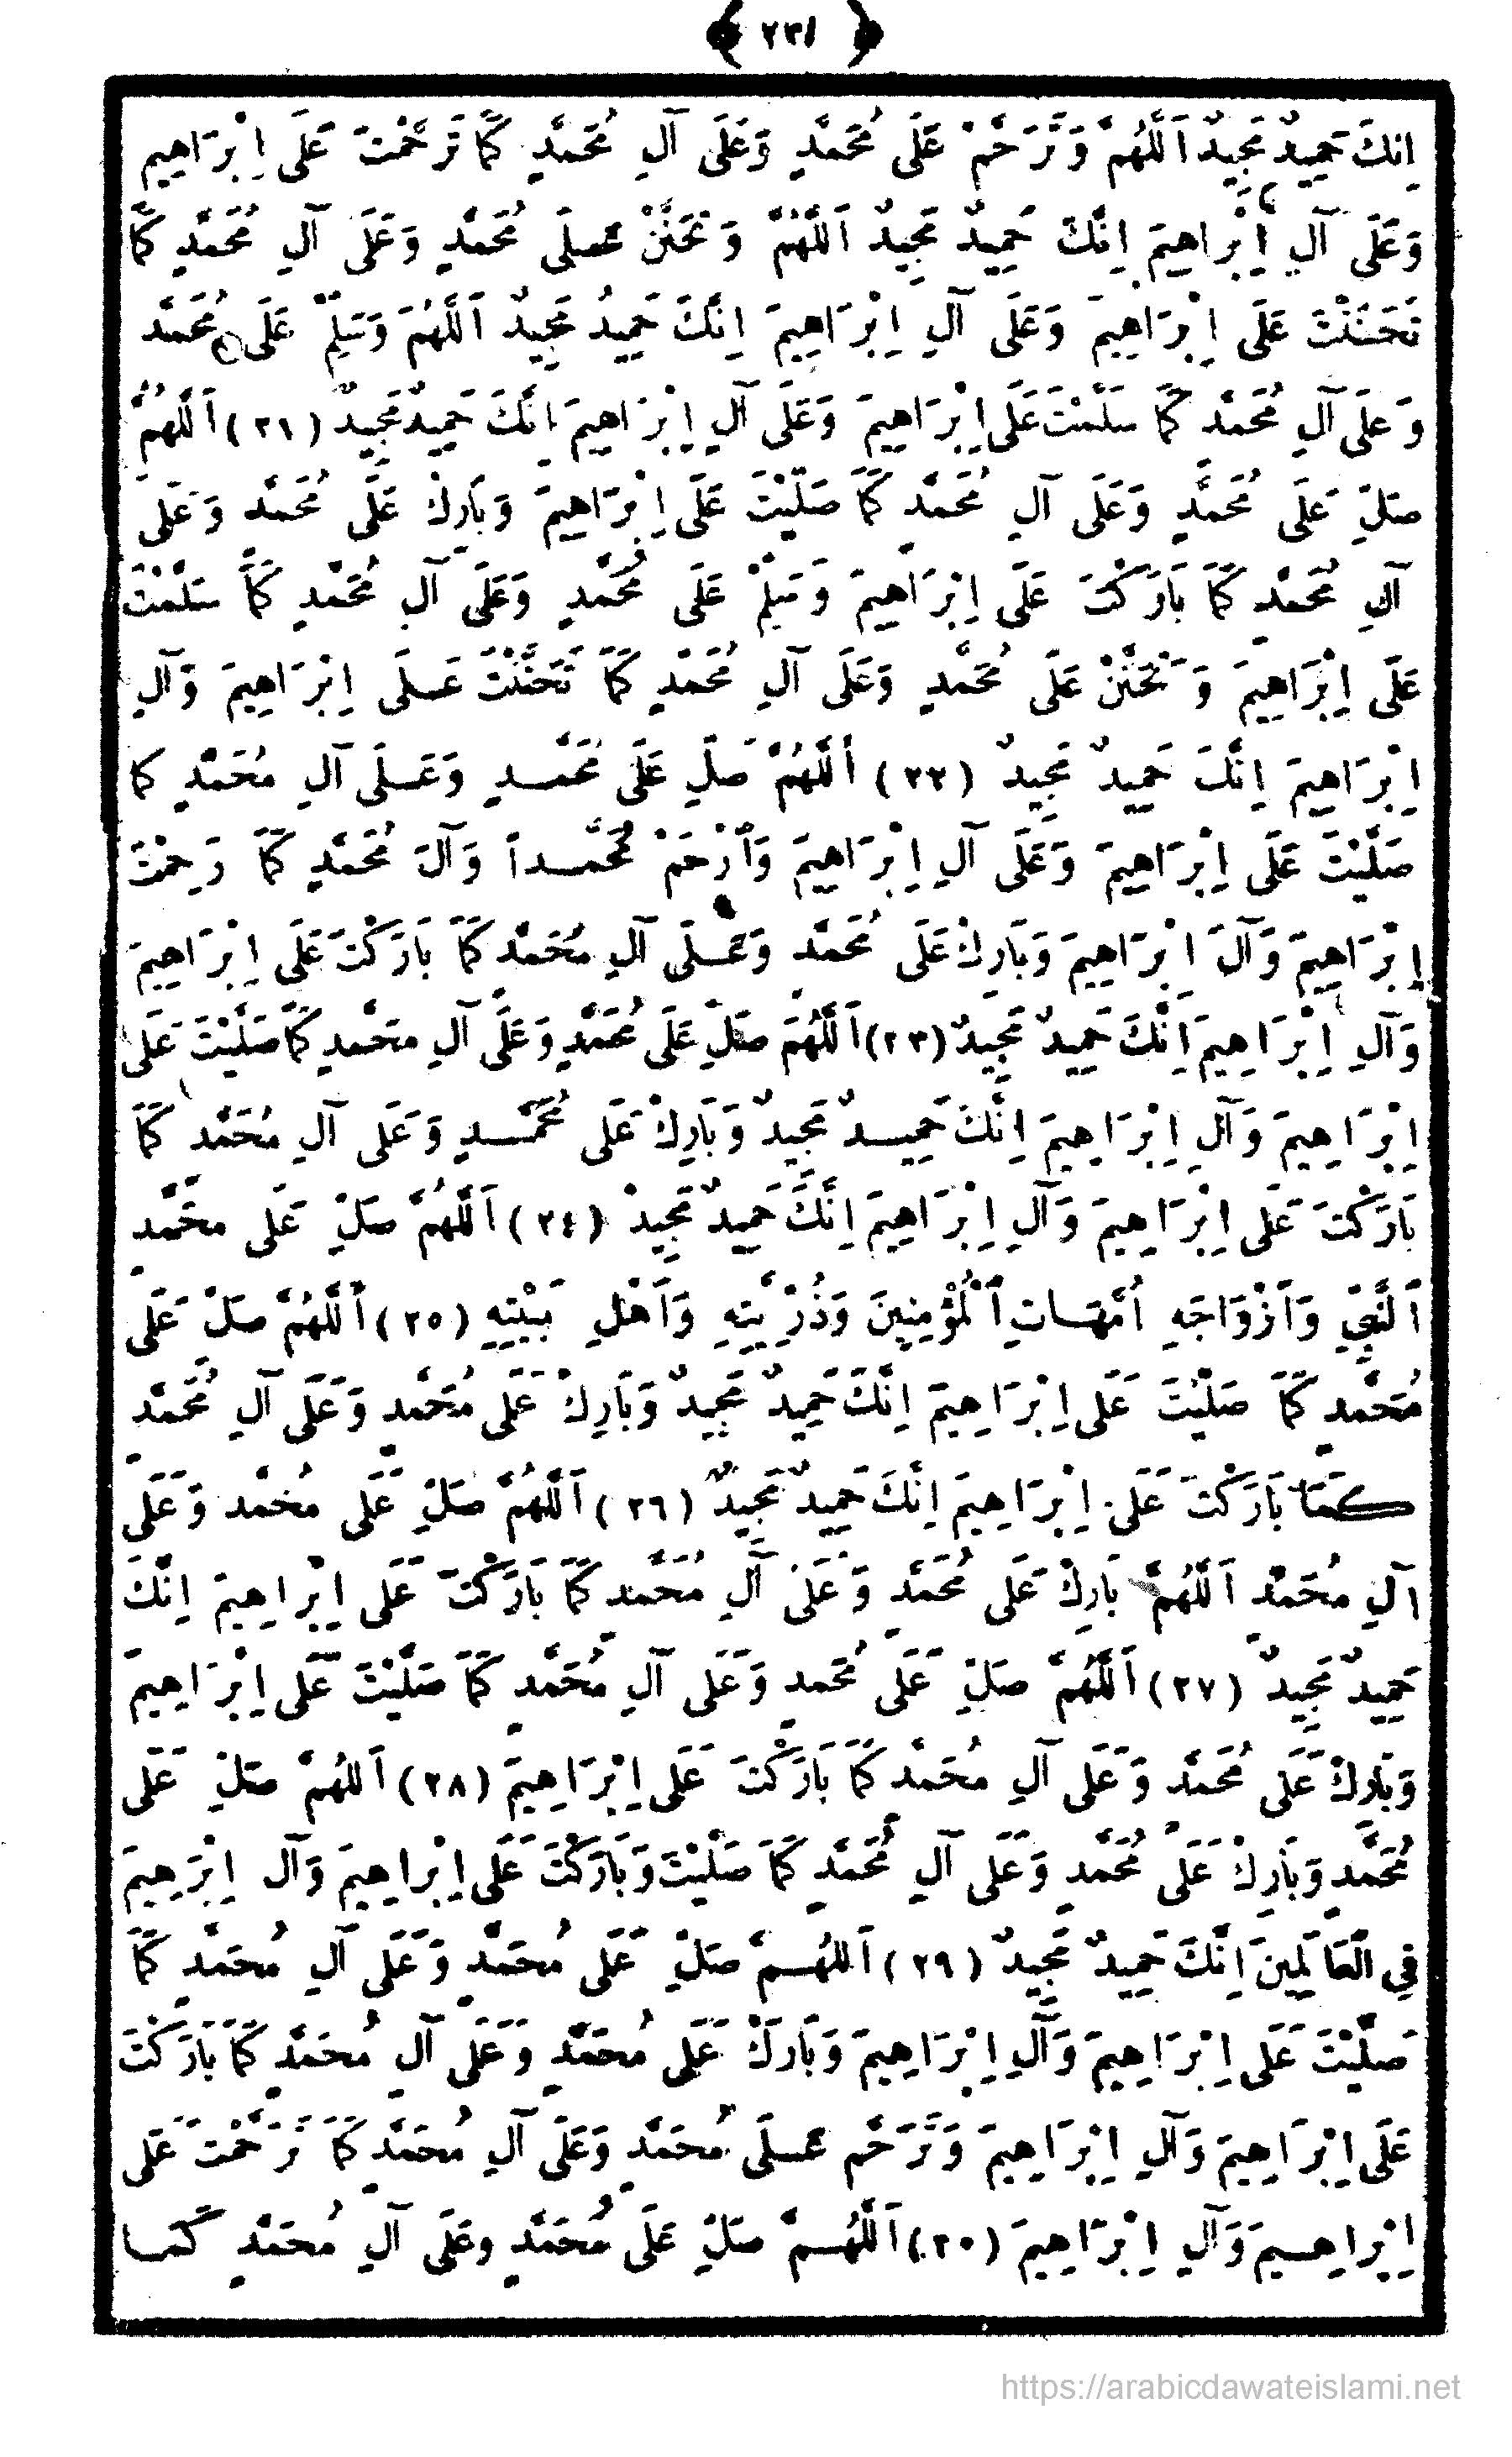 ﴿ ٢٣١ ﴾
اِنكَ حَمِيدٌ مَجِيدٌ اَللَّهُمَّ وَتَرَحَّمْ عَلَى مُحَمَّدٍ وَعَلَى آلِ مُحَمَّدٍ كَمَا تَرَحَّمْتَ عَلَى اِبْرَاهِيم
وَعَلَى آلِ اِبْراهِيمَ اِنَّكَ حَمِيدٌ مَجِيدٌ اَللَّهُمَّ وَتَحَنَّنْ عَلَى مُحَمَّدٍ وَعَلَى آلِ مُحَمَّدٍ كَمَا
تَحَنَنْتَ عَلَى اِبْرَاهِيمَ وَعَلَى آلِ اِبْرَاهِيمَ اِنَّكَ حَمِيدُ مَجِيدٌ اَللَّهُمَ وَسَلِمّْ عَلَى مُحَمَّد
وَعلَى آلِ مُحَمَّدْ كَمَا سَلَّمْتَ عَلَى اِبْرَاهِيمَ وَعَلَى آلِ اِبْرَاهِيمَ اِنَّكَ حَمِيدٌ مَجِيدٌ (٢١) اَللَّهُمَّ
صَلِّ عَلَى مُحَمَّدٍ وَعَلَى آلِ مُحَمَّدٍ كَمَا صَلَّيْتَ عَلَى اِبْرَاهِيمَ وَبَارِكْ عَلَى مُحَمَّد وَعَلى
آلِ مُحَمَّدٍ كَمَا بَارَكْتَ عَلَى اِبْرَاهِيمَ وَسَلِّمْ عَلَى مُحَمَّدٍ وَعَلَى آلِ مُحَمَّدٍ كَمَا سَلَّمْتَ
عَلَى اِبْرَاهِيمَ وَتَحَنَّنْ عَلَى مُحَمَّدٍ وَعَلَى آلِ مُحَمَّدٍ كَمَا تَحَنَّنْتَ عَلَى اِبْرَاهِيمَ وَآلِ
اِبْرَاهِيمَ اِنَّكَ حَمِيدٌ مَجِيدٌ (٢٢) اَللَّهُمَّ صَلِّ عَلَى مُحَمَّدٍ وَعَلَى آلِ مُحَمَّدٍ كما
صَلَّيْتَ عَلَى اِبْرَاهِيمَ وَعَلَى آلِ اِبْرَاهِيمَ وَٱرْحَمْ مُحَمَّداً وَآلَ مُحَمَّدٍ كَمَا رَحِمْتَ
اِبْرَاهِيمَ وَآلَ اِبْرَاهِيمَ وَبَارِكْ عَلَى مُحَمَّدٍ وَعَلَى آلِ مُحَمَّدٍ كَمَا بَارَكْتَ عَلَى اِبْرَاهِيمَ
وَآلِ اِبْرَاهِيمَ اِنَّكَ حَمِيدٌ مَجِيدٌ (٢٣) اَللَّهُمَ صَلِّ عَلَى مُحَمَّدٍ وَعَلَى آلِ محَمَّدٍ كَمَا صَلَّيْتَ عَلَى
اِبْرَاهِيمَ وَآلِ اِبْرَاهِيمَ اِنَّكَ حَمِيدٌ مَجِيدٌ وَبَارِكْ عَلَى مُحَمَّدٍ وَعَلَى آلِ مُحَمَّدٍ كَمَا
بَارَكْتَ عَلَى اِبْرَاهِيمَ وَآلِ اِبْرَاهِيمَ اِنَّكَ حَمِيدٌ مَجِيدْ (٢٤) اَللَّهُمَّ صَلِّ عَلَى محَمَّدٍ
ٱلنَّبِيِّ وَاَزْوَاجَهِ اُمَّهَاتِ ٱلْمُؤْمِنِينَ وَذُرِّيَّتِهِ وَاَهْلِ بَيْتِهِ (٢٥) اَللَّهُمَّ صَلِّ عَلَى
مُحَمَّدٍ كَمَا صَلَّيْتَ عَلَى اِبْرَاهِيمَ اِنَّكَ حَمِيدٌ مَجِيدٌ وَبَارِكْ عَلَى مُحَمَّدٍ وَعَلَى آلِ مُحَمَّدٍ
كَمَا بَارَكْتَ عَلَى اِبْرَاهِيمَ اِنَّكَ حَمِيدٌ مَجِيدٌ (٢٦) اَللَّهُمَّ صَلِّ عَلَى مُحَمَّد وَعَلَى
آلِ مُحَمَّدٍ اَللَّهُمَّ بَارِكْ عَلَى مُحَمَّدٍ وَعَلَى آلِ مُحَمَّدٍ كَمَا بَارَكْتَ عَلَى اِبْراهِيمَ اِنَّكَ
حَمِيدٌ مَجِيدٌ (٢٧) اَللَّهُمَّ صَلِّ عَلَى مُحَمدٍ وَعَلَى آلِ مُحَمَّدٍ كَمَا صَلَّيْتَ عَلَى اِبْرَاهِيمَ
وَبَارِكْ عَلَى مُحَمَّدٍ وَعَلَى آلِ مُحَمَّدٍ كَمَا بَارَكْتَ عَلَى اِبْرَاهِيمَ (٢٨) اَللهُمَّ صَلِّ عَلَى
مُحَمَّدٍ وَبَارِكْ عَلَى مُحَمَّدٍ وَعَلَى آلِ مُحَمَّدٍ كَمَا صَلَّيْتَ وَبَارَكْتَ عَلَى اِبْراهِيمَ وَآل اِبْرَهِيمَ
فِي الْعَالَمِينَ اِنَّكَ حَمِيدٌ مَجِيدٌ (٢٩) اَللهُمَّ صَلِّ عَلَى مُحَمَّدٍ وَعَلَى آلِ مُحَمَّدٍ كَمَا
صَلَّيْتَ عَلَى اِبْرَاهِيمَ وَآلِ اِبْرَاهِيمَ وَبَارَكْ عَلَى مُحَمَّدٍ وَعَلَى آلِ مُحَمَّدٍ كَمَا بَارَكْتَ
عَلَى اِبْرَاهِيمَ وَآلِ اِبْرَاهِيمَ وَتَرَحَّم عَلَى مُحَمَّدٍ وَعَلَى آلِ مُحَمَّدٍ كَمَا تَرَحَّمْتَ عَلَى
اِبْراهِيمَ وَآلِ اِبْرَاهِيمَ (٣٠) اَللَّهُمَّ صَلِّ عَلَى مُحَمَّدٍ وعَلَى آلِ مُحَمَّدٍ كَمَا
https://arabicdawateislami.net